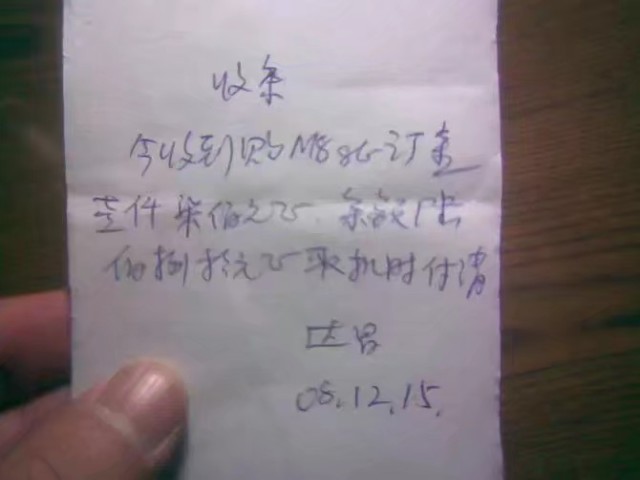 收条
今收到购M8 8G订金
壹仟柒佰元正.余额陆
佰捌拾元正取机时付清
08.12.15.